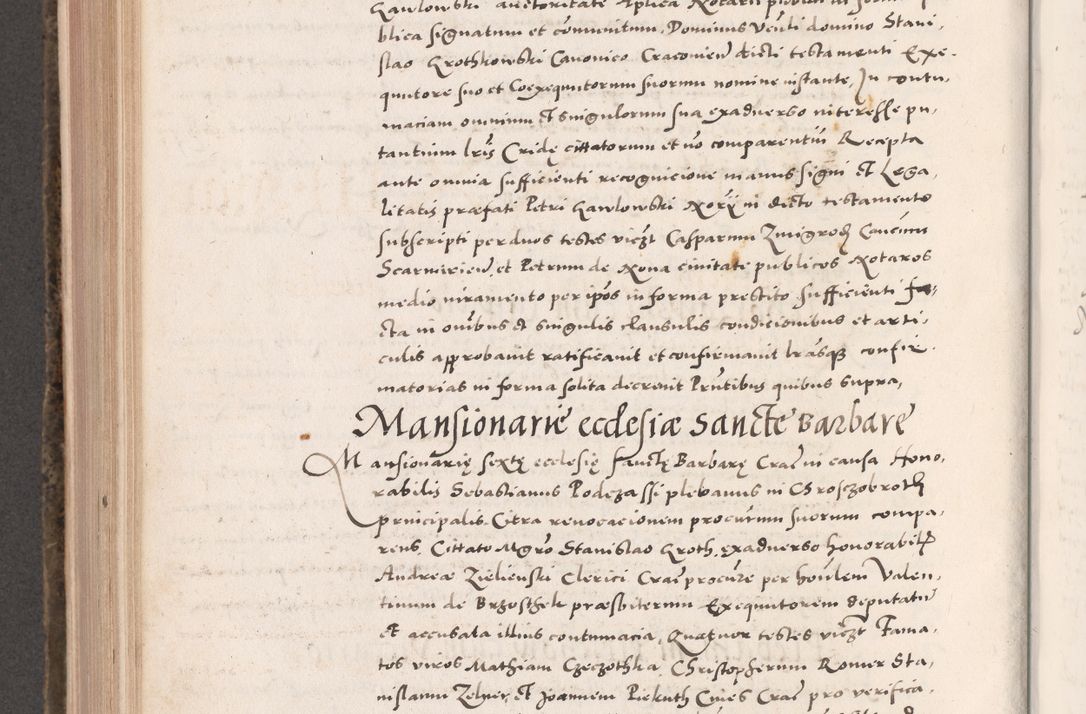 Gawlowski auctoritate Aplica Notarii publici in forma pu
blica signatum et communitum, Dominus Venli domino Stani
slao Grothkowski Canonico Cracovien dicti testamenti Exe-
quutore suo et Coexequutorum suorum nomine instante, In contu,
maciam omnium et singulorum sua exadverso interesse pu,
tantium lris Cridę cittatorum et no comparentiu Recepta
ante omnia sufficienti recognicione manus signi et Lega,
litatis præfati Petri Gawlowski Norii in dicto testamento
subscripti per duos testes viczt Casparum Zmigrod Cancum
Scarmirien et Petrum de Nova civitate publicos Notaros
medio iuramento per ipos in forma prestito sufficienti fa,
cta in onibus et singulis clausulis condicionibus et arti,
culis approbavit ratificavit et confirmavit lrasque confir.
matorias in forma solita decrevit Prntibus quibus supra,
Mansionarie ecclesiæ Sancte Barbare
Mansionarię sextę ecclesię sanctę Barbarę Crac in causa Hono,
rabilis Sebastianus Podczassi plebanus in Chrosczobroth
principalis. Citra revocacionem procurum suorum compa,
rens, Cittato Mgro Stanislao Groth, exadverso honorabil
Andreæ Zielienski Clerici Crac procure per honlem Valen,
tinum de Brzosthek præsbiterum Exequutorem deputatu
et accusata illius contumacia, Quatuor testes viczt Fama,
tos viros Mathiam Czeczothka, Christopherum Romer Sta,
nislaum Zelner, et Joannem Piekuth Cives Crac pro verifica,